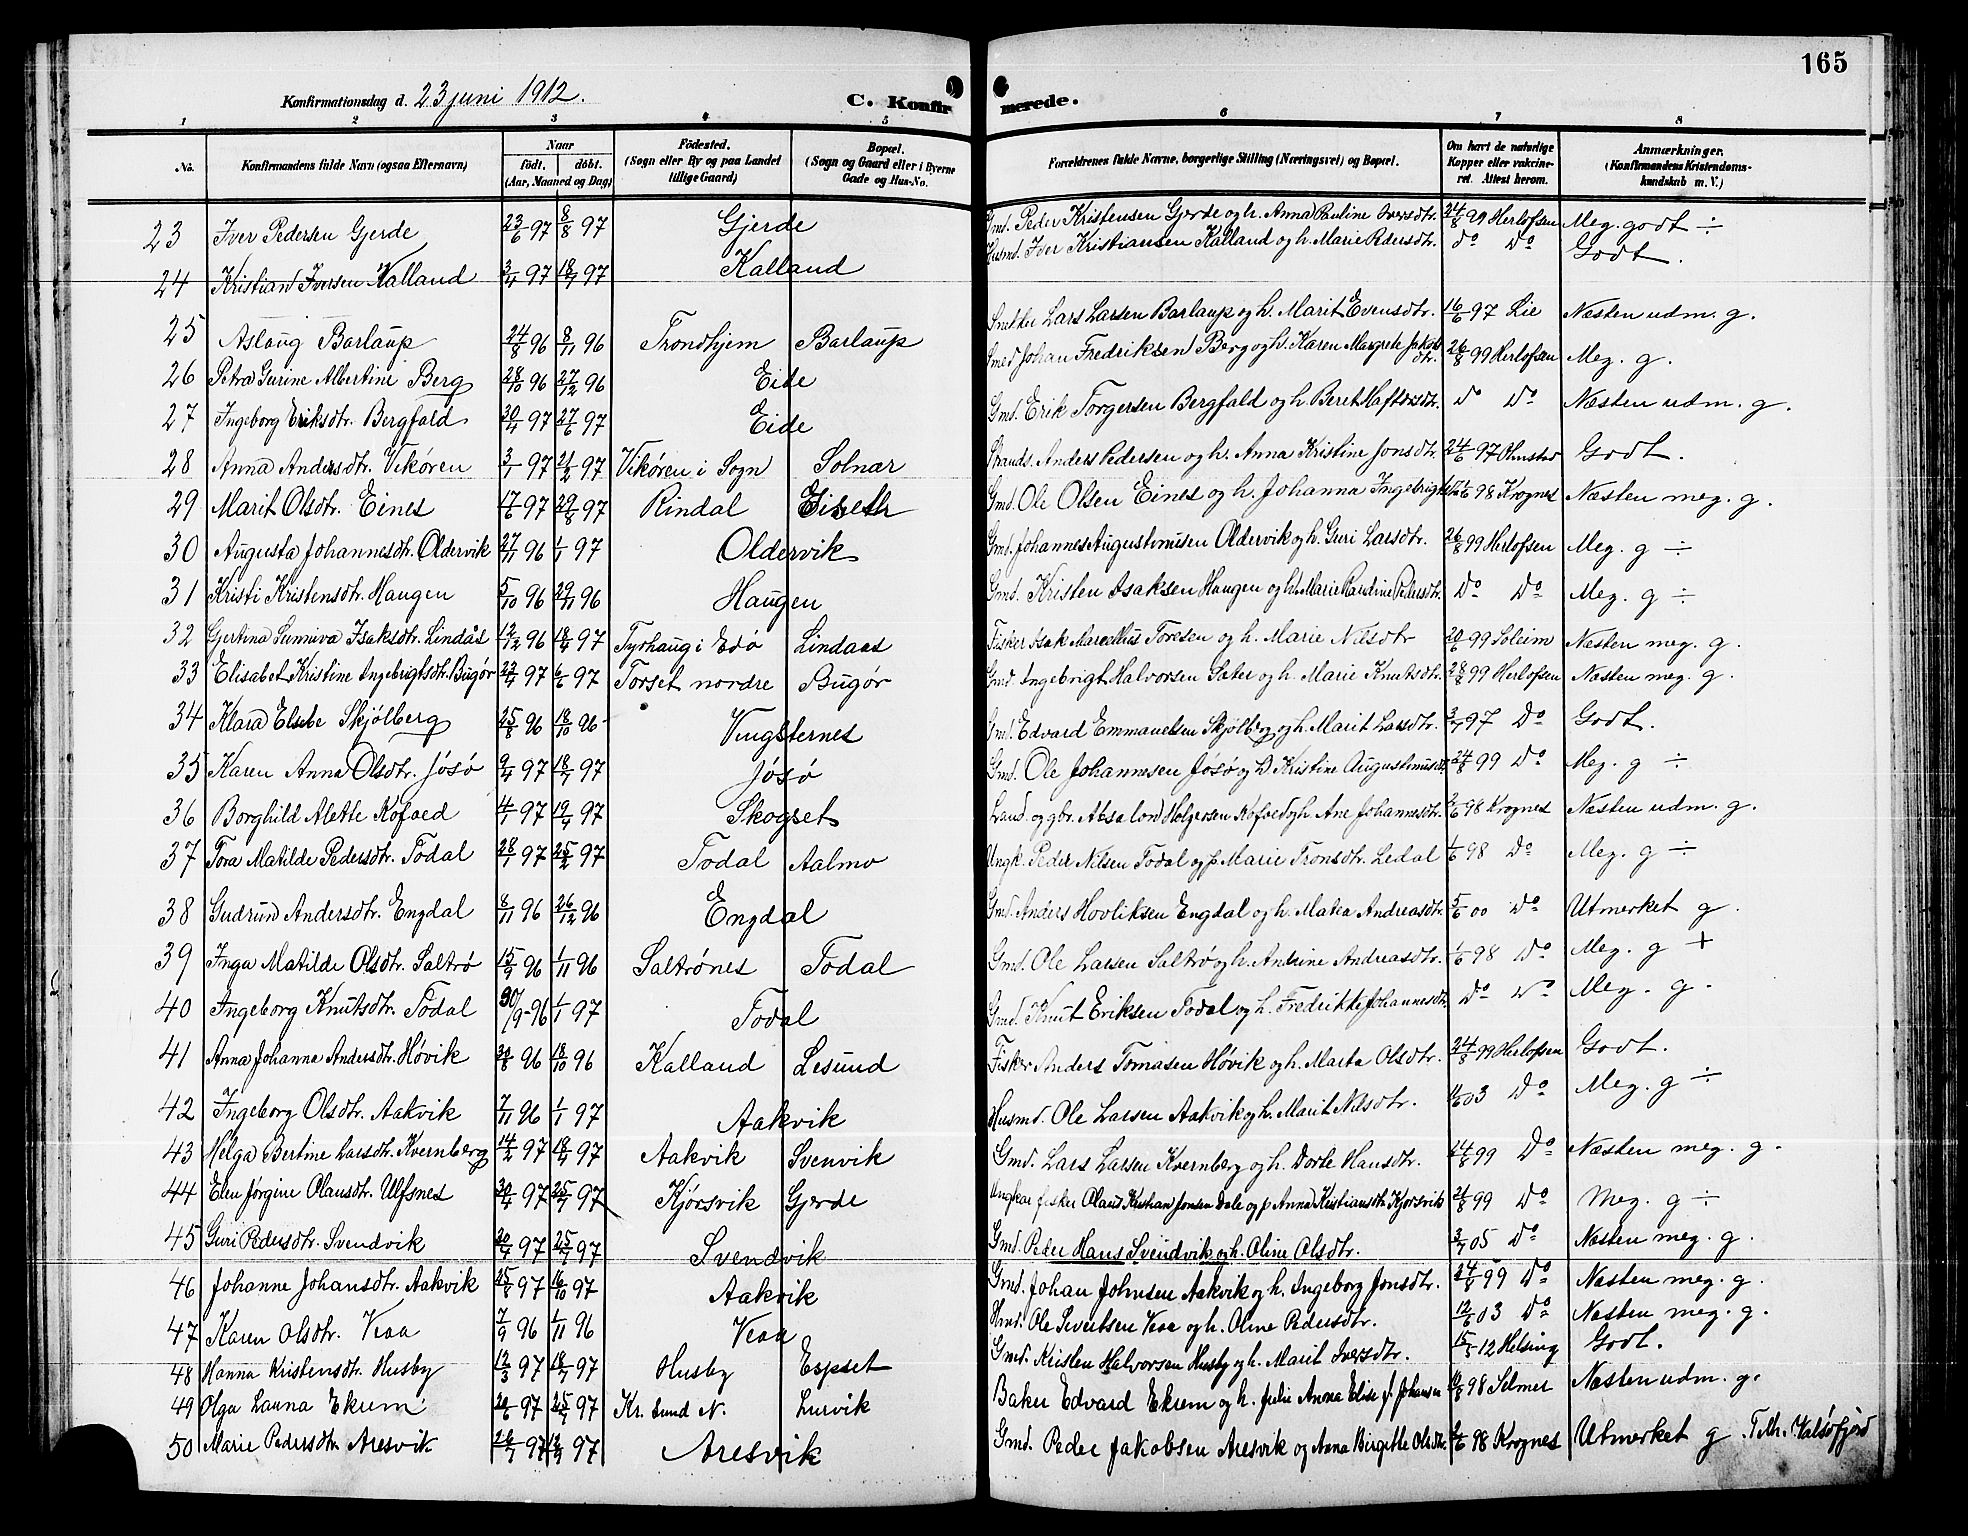 165
Konfirmationsdag d. 23 juni 1912. C. Konfirmerede.
1 2 3 4 5 6 7 8
No. Konfirmandens fulde Navn (ogsaa Efternavn) Naar födt. döbt. (Aar, Maaned og Dag) Födested. (Sogn eller By og paa Landet tillige Gaard) Bopæl. (Sogn og Gaard eller i Byerne Gade og Hus-No. Forældrenes fulde Navne, borgerlige Stilling (Næringsvei) og Bopæl. Om havt de naturlige Kopper eller vakcineret. Attest herom. Anmærkninger. (Konfirmandens Kristendomskundskab m. V.)
23 Iver Pedersen Gjerde 23/6 97 8/8 97 Gjerde Gmd. Peder Kristensen Gjerde og h. Anna Pauline Iversdtr. 24/8 99 Herlofsen Meg. godt ÷
24 Kristian Iversen Kalland 3/4 97 18/7 97 Kalland Husmd. Iver Kristiansen Kalland og h. Marie Pedersdtr. do do Godt.
25 Aslaug Barlaup 24/8 96 8/11 96 Trondhjem Barlaup Snekker Lars Larsen Barlaup og h. Marit Evensdtr. 16/6 97 Lie Næsten udm. g.
26 Petra Gurine Albertine Berg 28/10 96 27/12 96 Eide Smed Johan Fredriksen Berg og h. Karen Margrete Jakobsdtr. 26/8 99 Herlofsen Meg. g.
27 Ingeborg Eriksdtr. Bergfald 30/4 97 27/6 97 Eide Gmd. Erik Torgersen Bergfald og h. Beret Haftorsdtr. do do Næsten udm. g.
28 Anna Andersdtr. Vikøren 3/1 97 21/2 97 Vikøren i Sogn Solnør Strands. Anders Pedersen og h. Anna Kristine Jonsdtr. 24/6 97 Godt.
29 Marit Olsdtr. Eines 17/6 97 29/8 97 Rindal Eiseth Gmd. Ole Olsen Eines og h. Johanna Ingebrigtsdtr. 98 Krognes Næsten meg. g.
30 Augusta Johannesdtr. Oldervik 27/11 96 1/1 97 Oldervik Gmd. Johannes Augustinusen Oldervik og h. Guri Larsdtr. 26/8 99 Herlofsen Meg. g ÷
31 Kristi Kristensdtr. Haugen 5/10 96 29/11 96 Haugen Gmd. Kristen Isaksen Haugen og h. Marie Randine Pedersdtr. do do Meg. g ÷
32 Gjertina Sunniva Isaksdtr. Lindås 12/12 96 18/4 97 Tyrhaug i Edø Lindaas Fisker Isak Marcellius Toresen og h. Marie Nilsdtr 20/6 99 Soleim Næsten meg. g.
33 Elisabet Kristine Ingebrigtsdtr. Bugør 22/4 97 6/6 97 Torset nordre Bugør Gmd. Ingebrigt Halvorsen Sater og h. Marie Knutsdtr. 28/8 99 Herlofsen Næsten meg. g.
34 Klara Elsebe Skjølberg 25/8 96 18/10 96 Vingsternes Gmd. Edvard Emmanuelsen Skjølberg og h. Marit Larsdtr. 3/7 97 do Godt.
35 Karen Anna Olsdtr. Jøsø 9/4 97 18/7 97 Jøsø Gmd. Ole Johannesen Jøsø og h. Kristine Augustinusdtr. 24/8 99 do Meg. g ÷
36 Borghild Alette Kofoed 4/1 97 19/4 97 Skogset Land. og gbr. Absalon Holgersen Kofoed og h. Ane Johannesdtr. 98 Krognes Næsten udm. g.
37 Tora Matilde Pedersdtr. Todal 28/1 97 25/2 97 Todal Aalmo Ungk. Peder Nilsen Todal og p. Marie Tronsdtr. Ledal 1/6 98 do Meg. g ÷
38 Gudrun Andersdtr. Engdal 8/11 96 26/12 96 Engdal Gmd. Anders Hovliksen Engdal og h. Matea Andreasdtr. 5/6 00 do Utmerket g.
39 Inga Matilde Olsdtr. Saltrø 15/9 96 1/11 96 Saltrønes Todal Gmd. Ole Larsen Saltrø og h. Andrine Andreasdtr. 1/6 98 do Meg. g +
40 Ingeborg Knutsdtr. Todal 30/9-96 1/1 97 Todal Gmd. Knut Eriksen Todal og h. Fredrikke Johannesdtr. do do Meg. g.
41 Anna Johanna Andersdtr. Høvik 30/8 96 18/10 96 Kalland Lesund Fisker Anders Tomasen Høvik og h. Marta Olsdtr. 24/8 99 Herlofsen Godt.
42 Ingeborg Olsdtr. Aakvik 7/11 96 1/1 97 Aakvik Husmd. Ole Larsen Aakvik og h. Marit Nilsdtr. 03 do Meg. g ÷
43 Helga Bertine Larsdtr. Kvernberg 14/2 97 18/4 97 Aakvik Svenvik Gmd. Lars Larsen Kvernberg og h. Dorte Hansdtr. 24/8 99 do Næsten meg. g.
44 Elen Jørgine Olausdtr. Ulfsnes 30/4 97 25/7 97 Kjørsvik Gjerde Ungkar fisker Olaus Kristian Jonsen Dale og p. Anna Kristiansdtr. Kjorsvik 21/8 99 do Meg. g ÷
45 Guri Pedersdtr. Svendvik 20/4 97 25/7 97 Svendvik Gmd. Peder Hans Svendvik og h. Oline Olsdtr. 3/7 05 do Næsten meg. g.
46 Johanne Johansdtr. Aakvik 25/8 97 16/10 97 Aakvik Gmd. Johan Johnsen Aakvik og h. Ingeborg Jonsdtr. 24/8 99 do Næsten meg. g.
47 Karen Olsdtr. Veaa 7/9 96 1/11 96 Veaa Hmd. Ole Sivertsen Veaa og h. Oline Pedersdtr. 12/6 03 do Næsten meg. g.
48 Hanna Kristensdtr. Husby 12/3 97 18/7 97 Husby Espset Gmd. Kristen Halvorsen Husby og h. Marit Iversdtr. 15/5 12 Helsing Godt.
49 Olga Launa Ekrem 20/6 97 25/7 97 Kr. Sund N. Lurvik Baker Edvard Ekrem og h. Julie Anna Elise f. Johansen 98 Selmer Næsten udm. g.
50 Marie Pedersdtr. Aresvik 26/7 97 97 Aresvik Gmd. Peder Jakobsen Aresvik og Anna Birgitte Olsdtr. 98 Krognes Utmerket g. Tilh. Halsøfjord